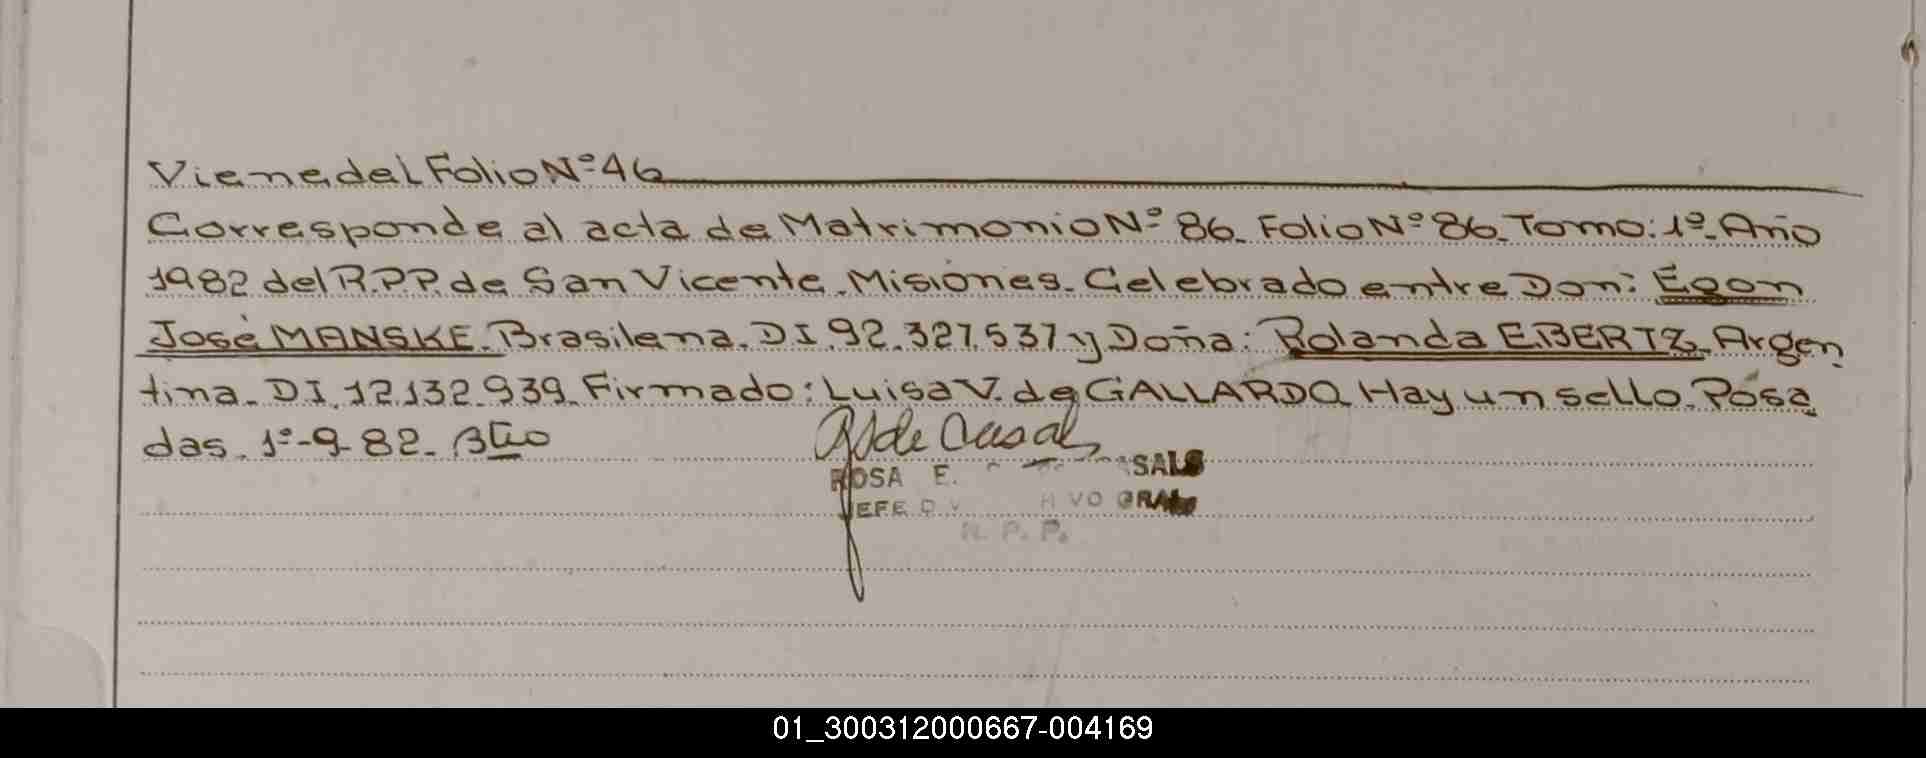 Viene del Folio Nº 46
Corresponde al acta de Matrimonio Nº 86. Folio Nº 86. Tomo: 1º. Año
1982 del R.P.P. de San Vicente. Misiones. Celebrado entre Don: Egon
José MANSKE. Brasilena. DI. 92.327.537 y Doña: Rolanda EBERTZ. Argen
tina. DI. 12.132.939. Firmado: Luisa V. de GALLARDO. Hay un sello. Posa
das. 1º-9-82.
de Casals
ROSA E. SALS
JEFE VO GRAL
R. P. P.
01_300312000667-004169